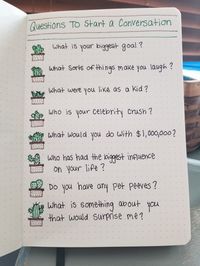 Questions To Start a Conversation
What is your biggest goal?
What sorts of things make you laugh?
What were you like as a kid?
Who is your celebrity crush?
What would you do with $1,000,000?
Who has had the biggest influence
on your life?
Do you have any pet peeves?
What is something about you
that would surprise me?